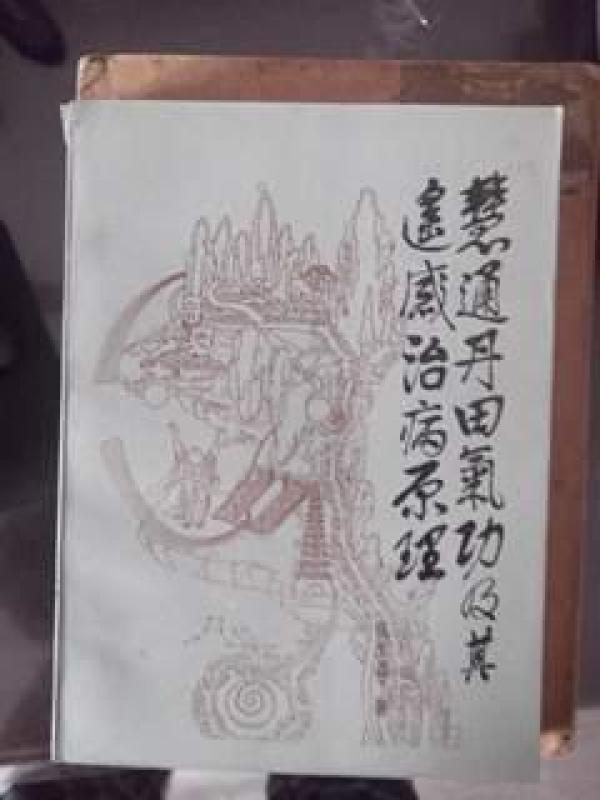 慧通丹田氣功及其
遙感治病原理